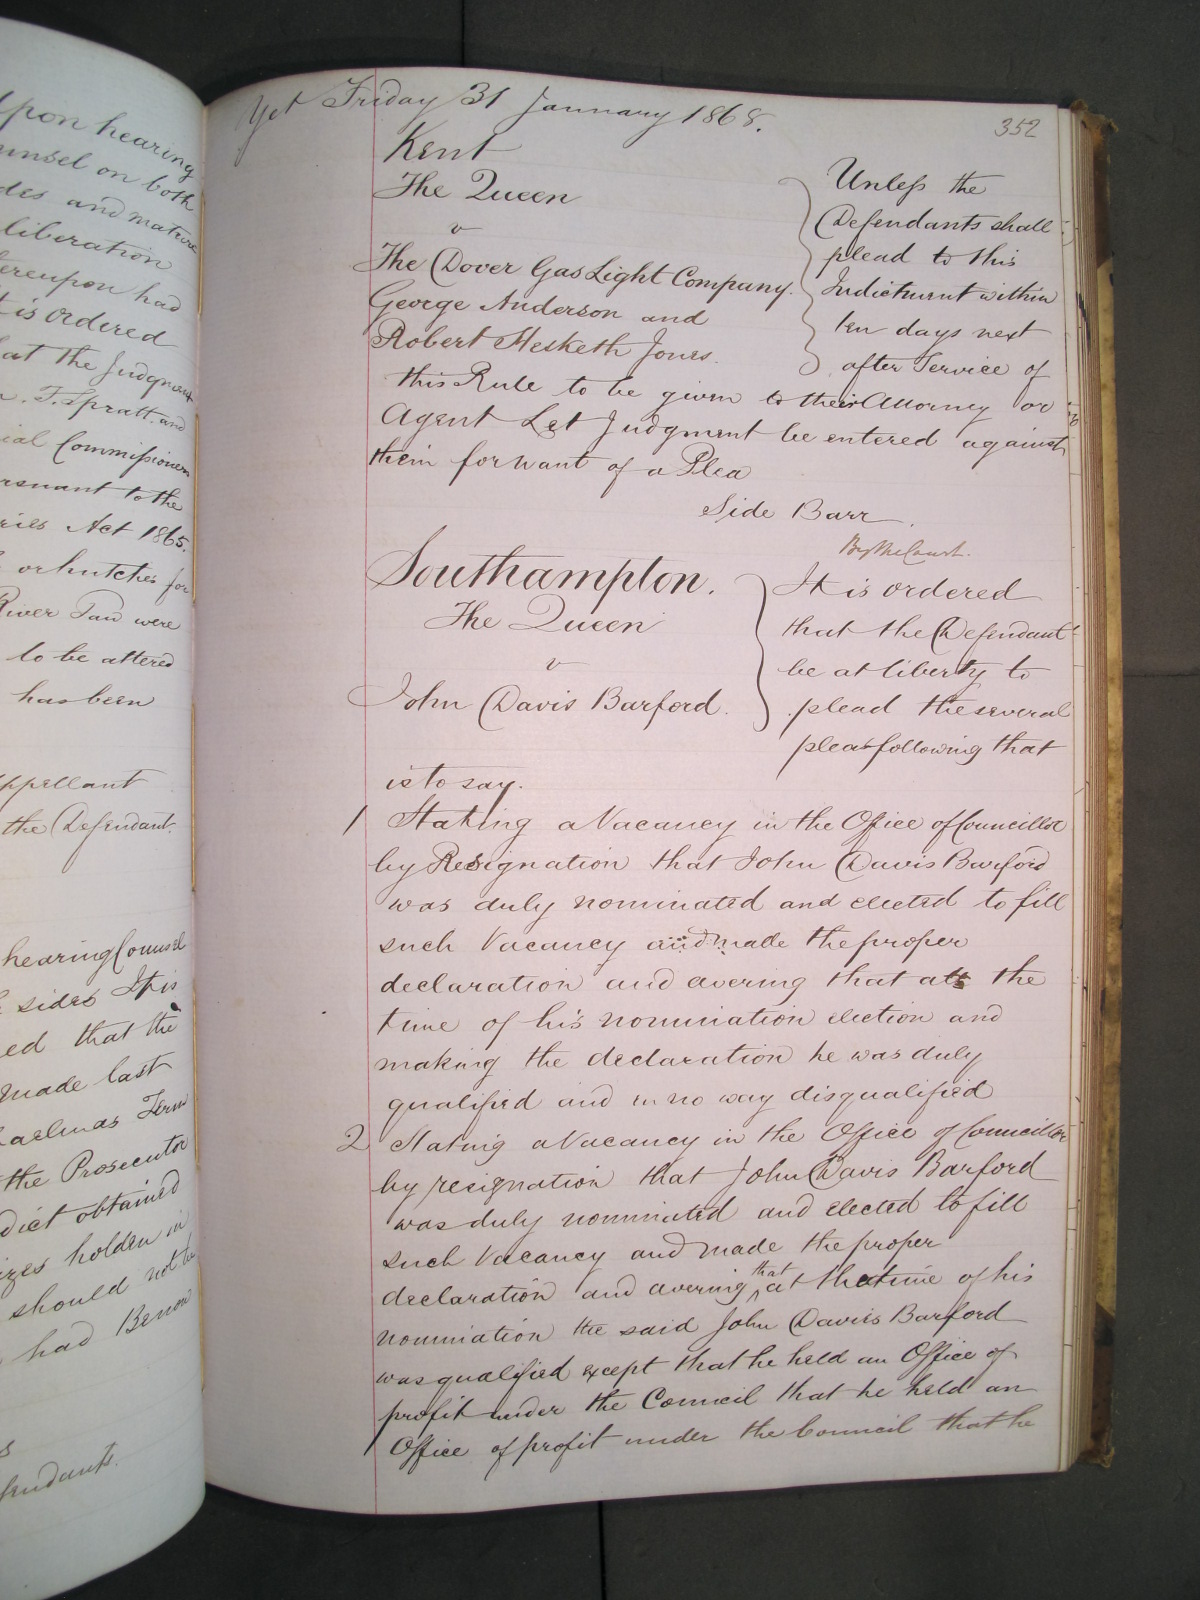 upon hearing
unsel on both
des and mature
liberation
ereupon had
t is Ordered
hat the Judgment
. T. Spratt and
ial Commissioners
rsuant to the
ries Act 1865.
or hutches for
River Taw were
to be altered
has been
ppellant
the Defendant.
hearing Counsel
sides It is
ed that the
made last
haelmas Term
the Prosecutor
dict obtained
izes holden in
should not be
had
s
fendants.
Yet Friday 31 January 1868.
352
Kent
The Queen
v
The Dover Gas Light Company.
George Anderson and
Robert Hesketh Jones.
Unless the
Defendants shall
plead to this
Indictment within
ten days next
after Service of
this Rule to be given to their Attorney or
Agent Let Judgment be entered against
them for want of a Plea
Side Barr.
By the Court.
Southampton.
The Queen
v
John Davis Barford.
It is ordered
that the Defendant
be at liberty to
plead the several
pleas following that
is to say.
1 Stating a Vacancy in the Office of Councillor
by Resignation that John Davis Barford
was duly nominated and elected to fill
such Vacancy and made the proper
declaration and avering that at the
time of his nomination election and
making the declaration he was duly
qualified and in no way disqualified
2 Stating a Vacancy in the Office of Councillor
by resignation that John Davis Barford
was duly nominated and elected to fill
such Vacancy and made the proper
declaration and avering that at the time of his
nomination the said John Davis Barford
was qualified except that he held an Office of
profit under the Council that he held an
Office of profit under the Council that he